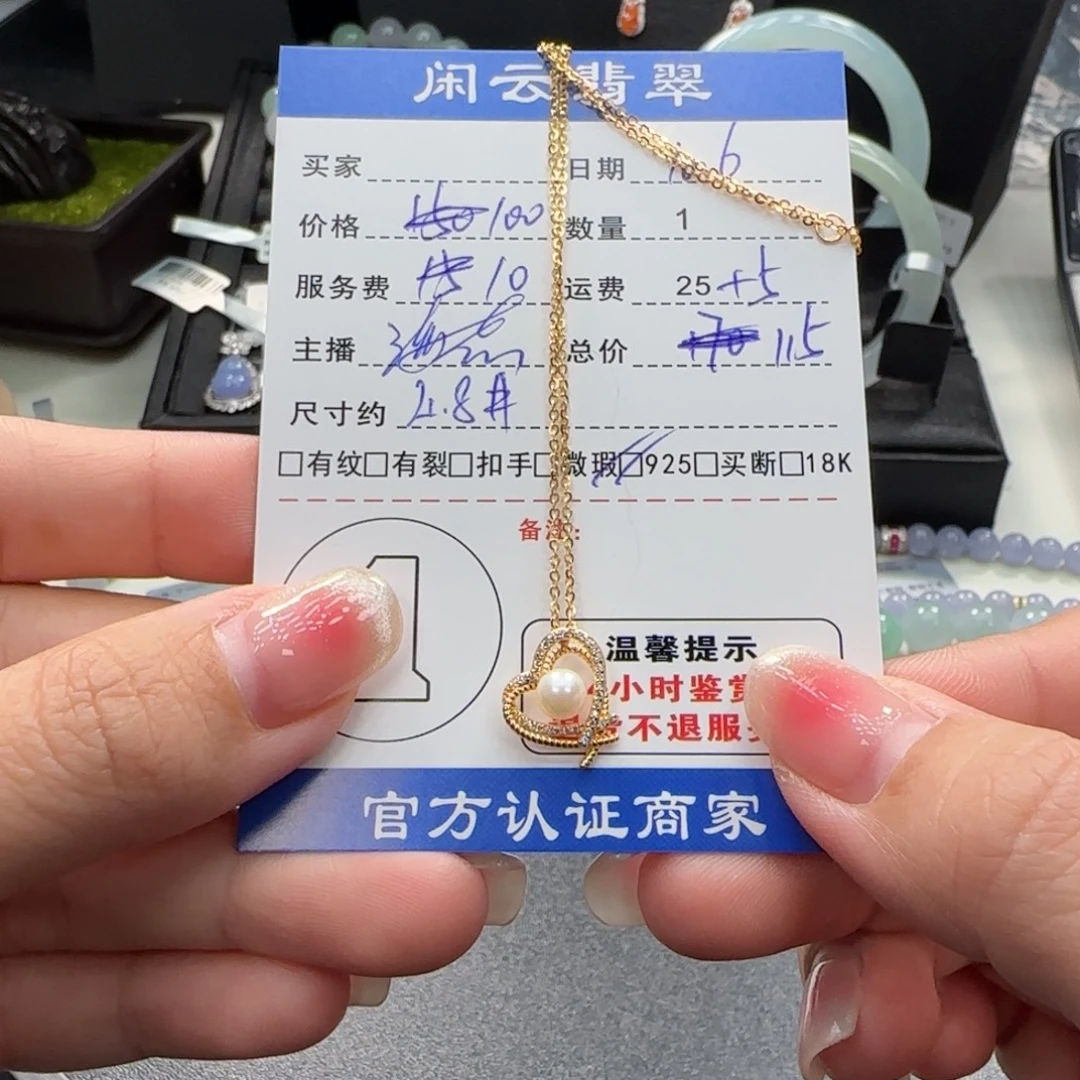 闲云翡翠
买家 日期 10.6
价格 150 100 数量 1
服务费 15 10 运费 25+5
主播 总价 170 115
尺寸约 4.8#
□有纹□有裂□扣手□微瑕□925□买断□18K
备注:
1
温馨提示
小时鉴赏
不退服
官方认证商家